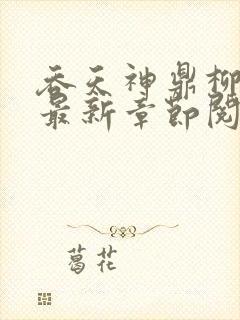 吞天神鼎柳
最新章节阅
葛花